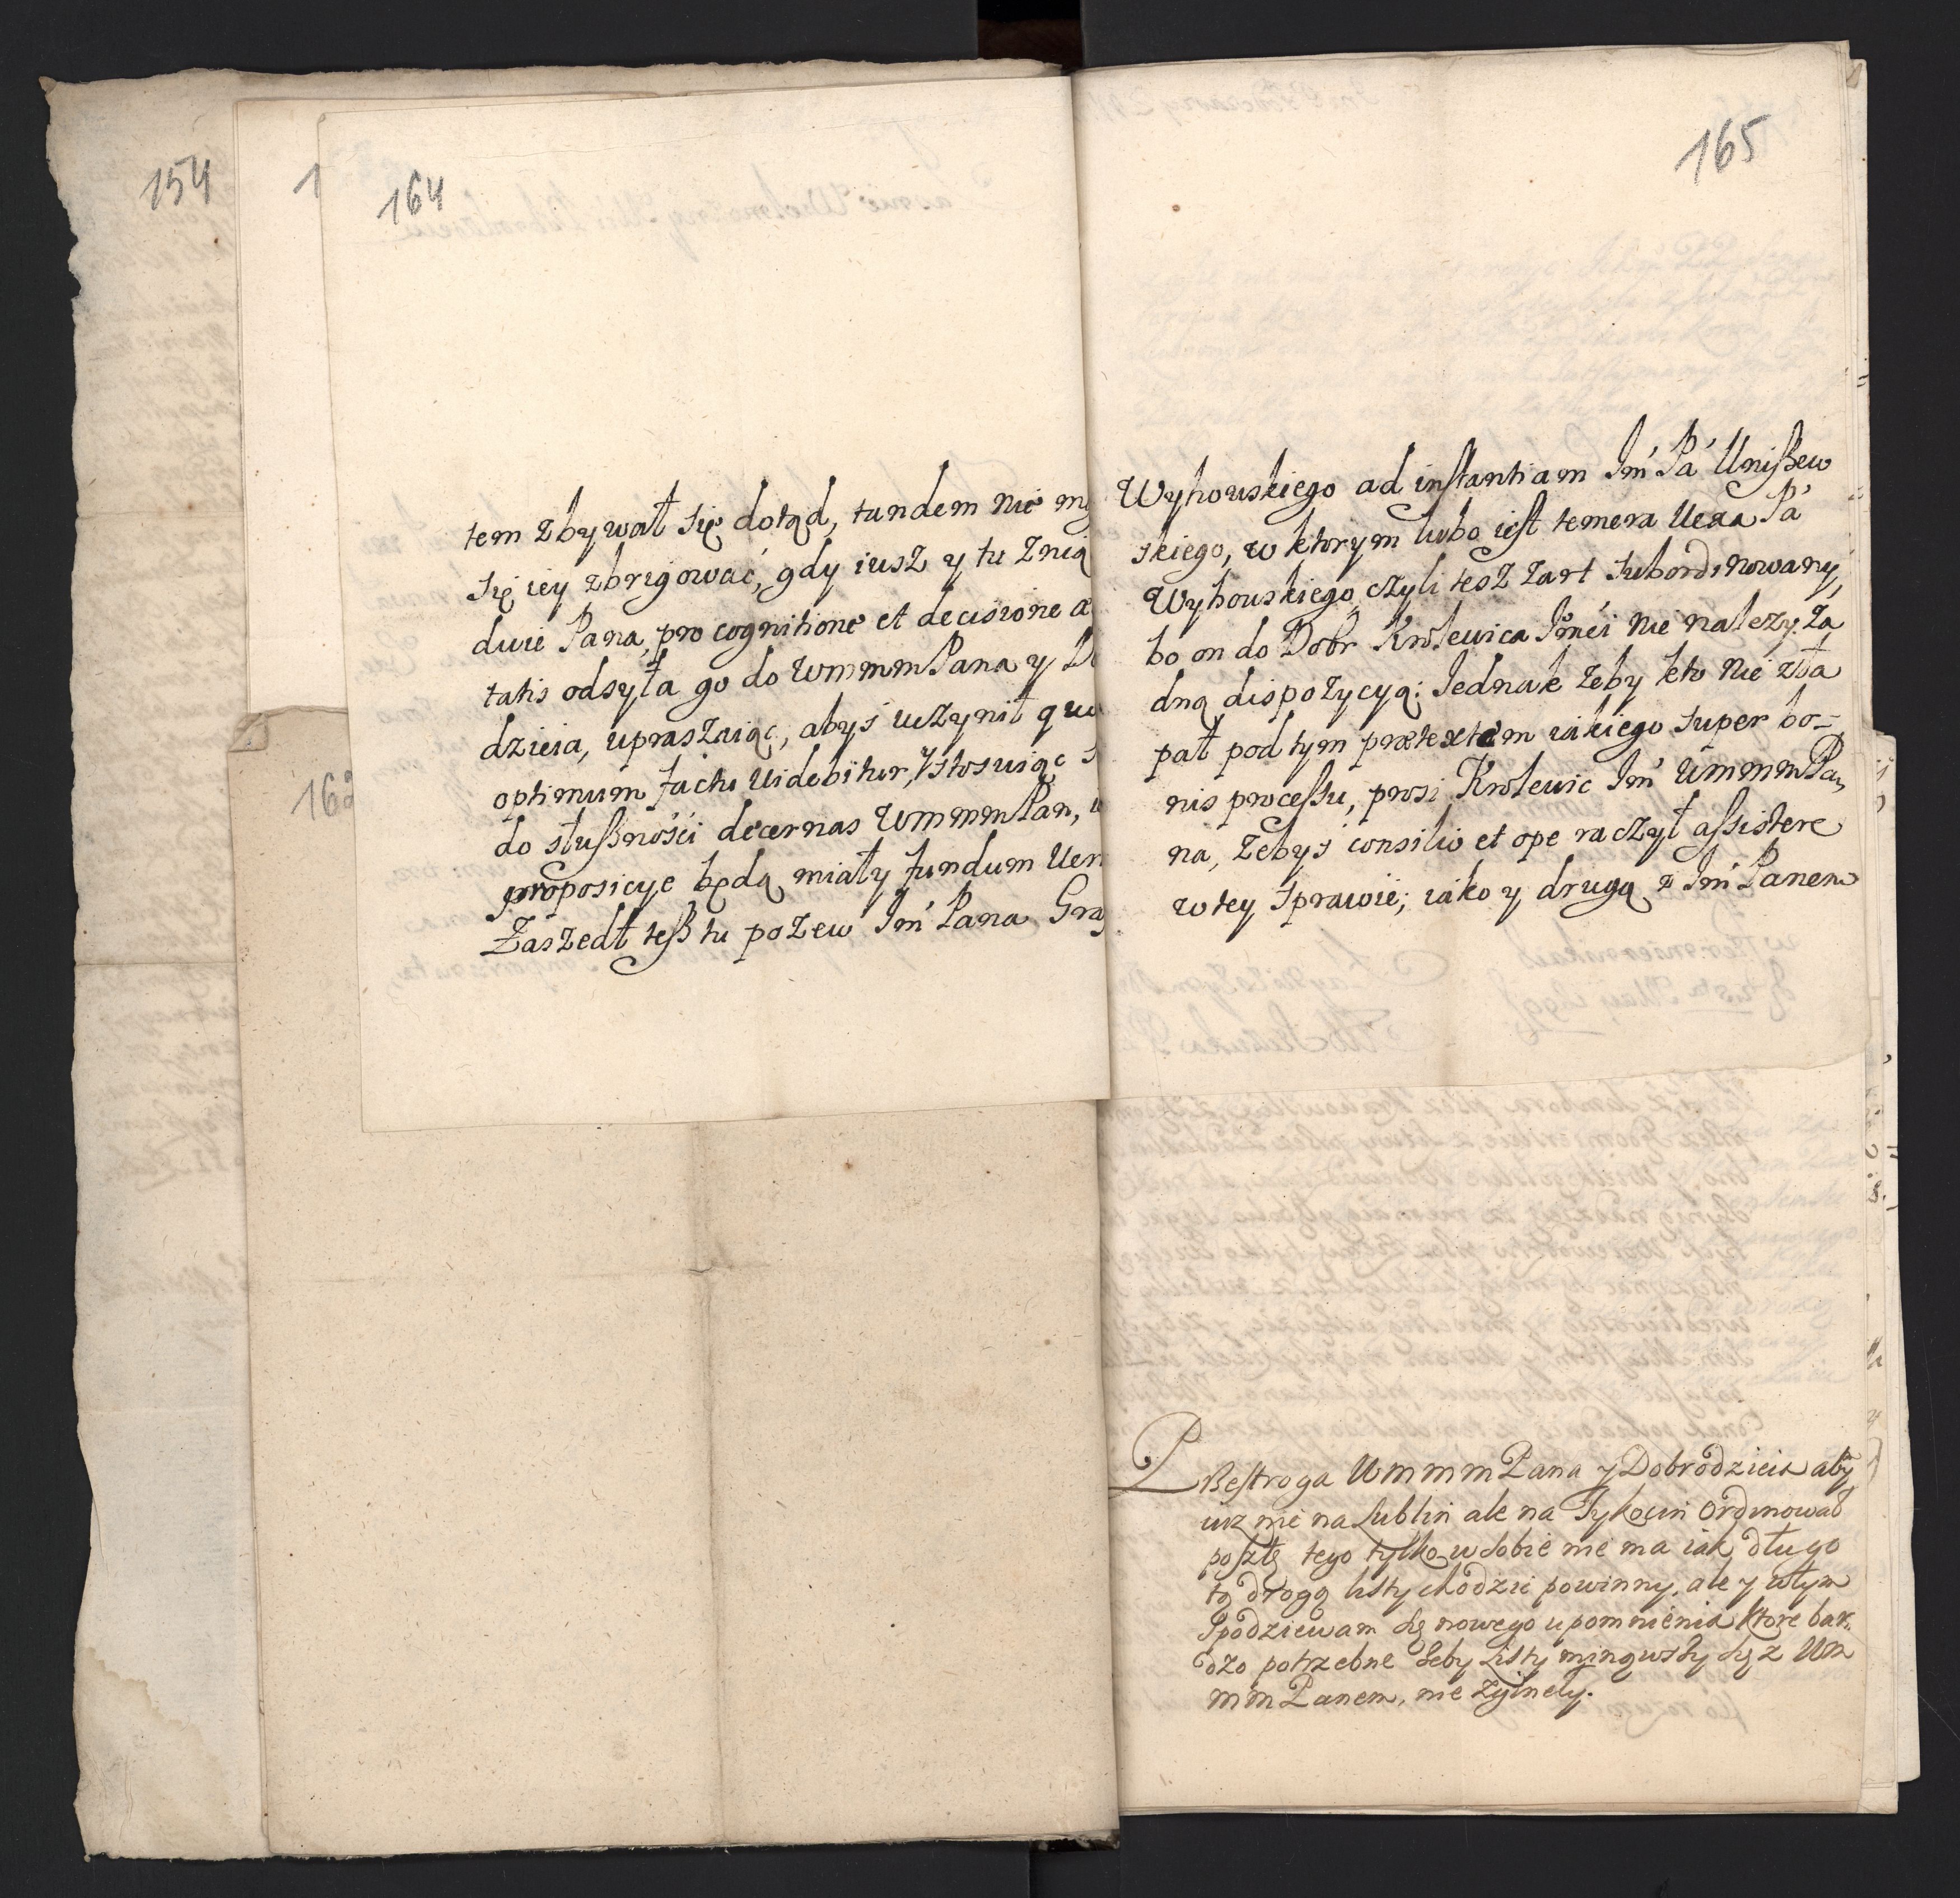 154
1
164
163
tem zbywał się dotąd, tandem nie
się iey zbrigować, gdy iusz y tu
duie Pana, pro cognitione et decisione
tatis odsyła go do WmmmPana y
dzieia, upraszaiąc, abyś uczynił
optimum factu uidebitur, Ystosuiąc
do słußności decernas WmmmPan,
proposicye będą miały fundum
Zaszedł teß tu pozew Im Pana
165
Wyhowskiego ad instantiam Im Pa Unißew
skiego, w ktorym lubo iest temera Uexa Pa
Wyhouskiego, czyli tesz zart subordinowany,
bo on do Dobr Krolewica Imći nie nalezy. za
dną dispozycyą: Jednak zeby kto nie zła
pał pod tym prætextem iakiego super bo-
nis processu, prosi Krolewic Im UmmmPa,
na, zebyś consilio et ope raczył assistere
w tey sprawie; iako y drugą z Im Panem
Pßestroga WmmmPana y Dobrodzieia aby
iuz nie na Lublin ale na Tykocin ordinował
posztę tego tylko w sobie nie ma iak długo
tą drogą listy chodzić powinny. ale y wtym
Spodziewam się nowego upomnienia ktore bar-
dzo potrzebne zeby Listy minąwszy się z Wm
mm Panem, nie zginely.